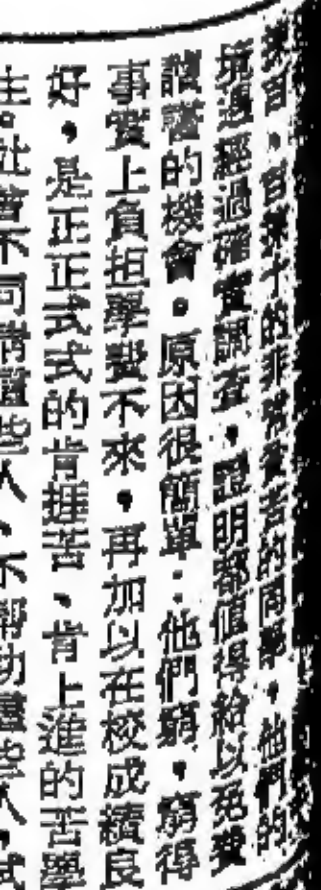 的非常貧苦的同學，他們的
境遇經過確實調查，證明都值得給以免費
讀書的機會。原因很簡單：他們窮，窮得
事實上負担學費不來，再加以在校成績良
好，是正正式式的肯捱苦、肯上進的苦學
生。社會不同情這些人、不幫助這些人，試